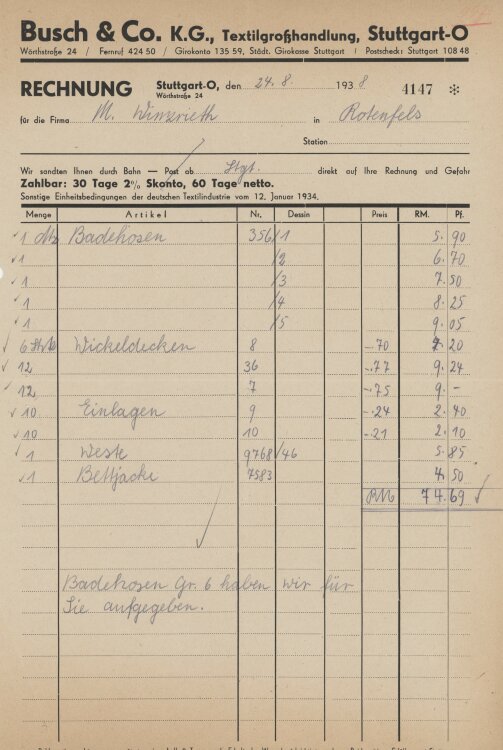 Busch & Co. K.G., Textilgroßhandlung, Stuttgart-O
Wörthstraße 24 / Fernruf 424 50 / Girokonto 135 59, Städt. Girokasse Stuttgart / Postscheck: Stuttgart 108 48
RECHNUNG Stuttgart-O, den 24. 8. 1938 4147 ✻
Wörthstraße 24
für die Firma M. Winzrieth in Rotenfels
Station
Wir sandten Ihnen durch Bahn — Post ab Stgt. direkt auf Ihre Rechnung und Gefahr
Zahlbar: 30 Tage 2% Skonto, 60 Tage netto.
Sonstige Einheitsbedingungen der deutschen Textilindustrie vom 12. Januar 1934.
Menge Artikel Nr. Dessin Preis RM. Pf.
1 Badehosen 356/1 5. 90
1 /2 6. 70
1 /3 7. 50
1 /4 8. 25
1 /5 9. 05
6 Wickeldecken 8 -.70 4. 20
12 36 -.77 9. 24
12 7 -.75 9. -
10 Einlagen 9 -.24 2. 40
10 10 -.21 2. 10
1 Weste 9768/46 5. 85
1 Bettjacke 7583 4. 50
RM 74.69
Badehosen Gr. 6 haben wir für
Sie aufgegeben.